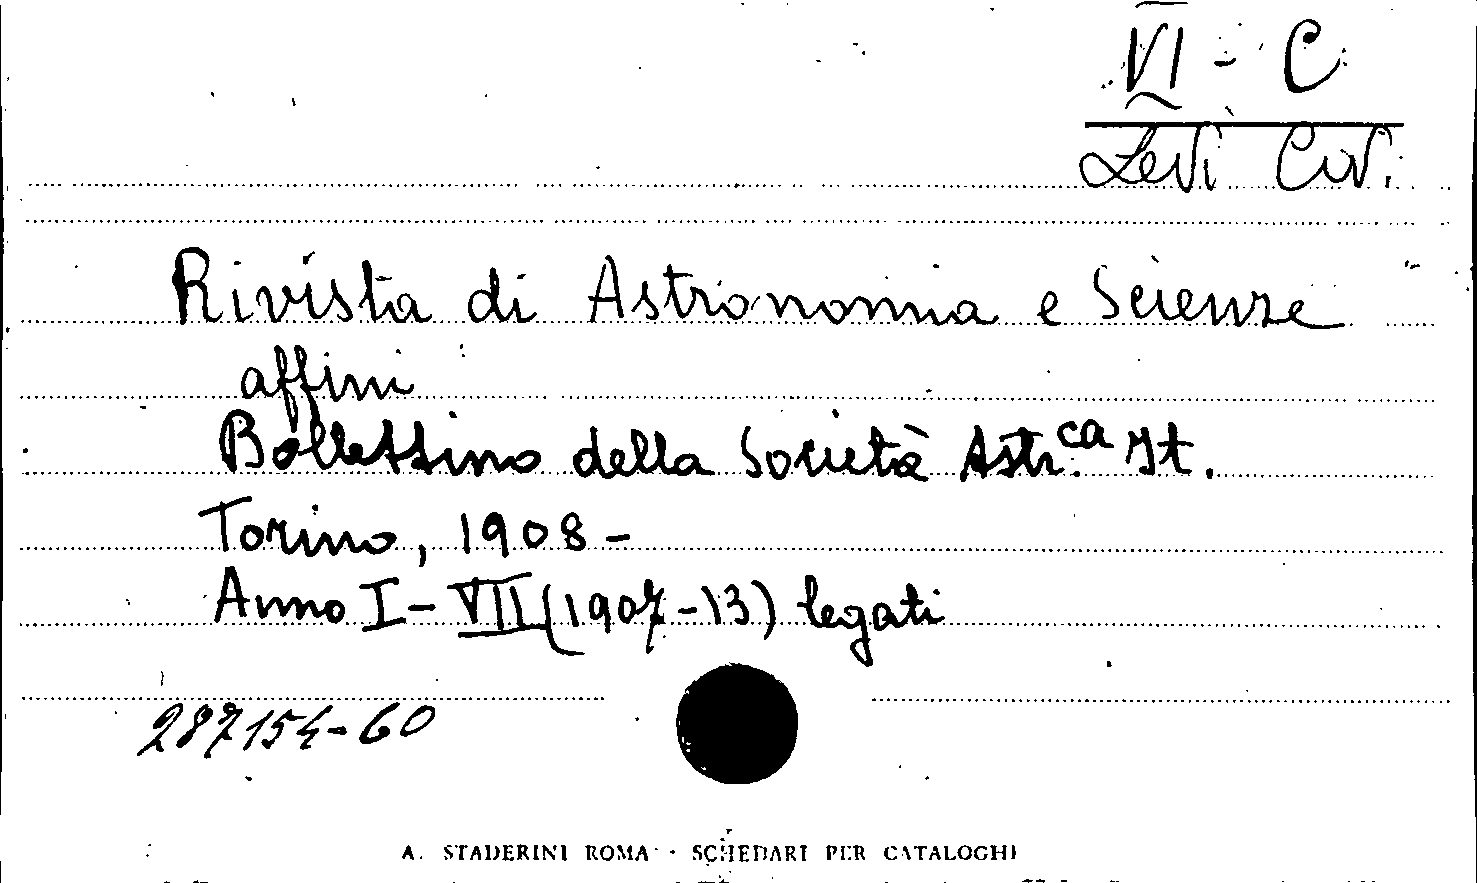 VI - C
Levi Civ.
Rivista di Astronomia e Scienze
affini
Bollettino della Società Astr.ca It.
Torino, 1908 -
Anno I - VII (1907-13) legati
287154-60
A. STADERINI ROMA · SCHEDARI PER CATALOGHI